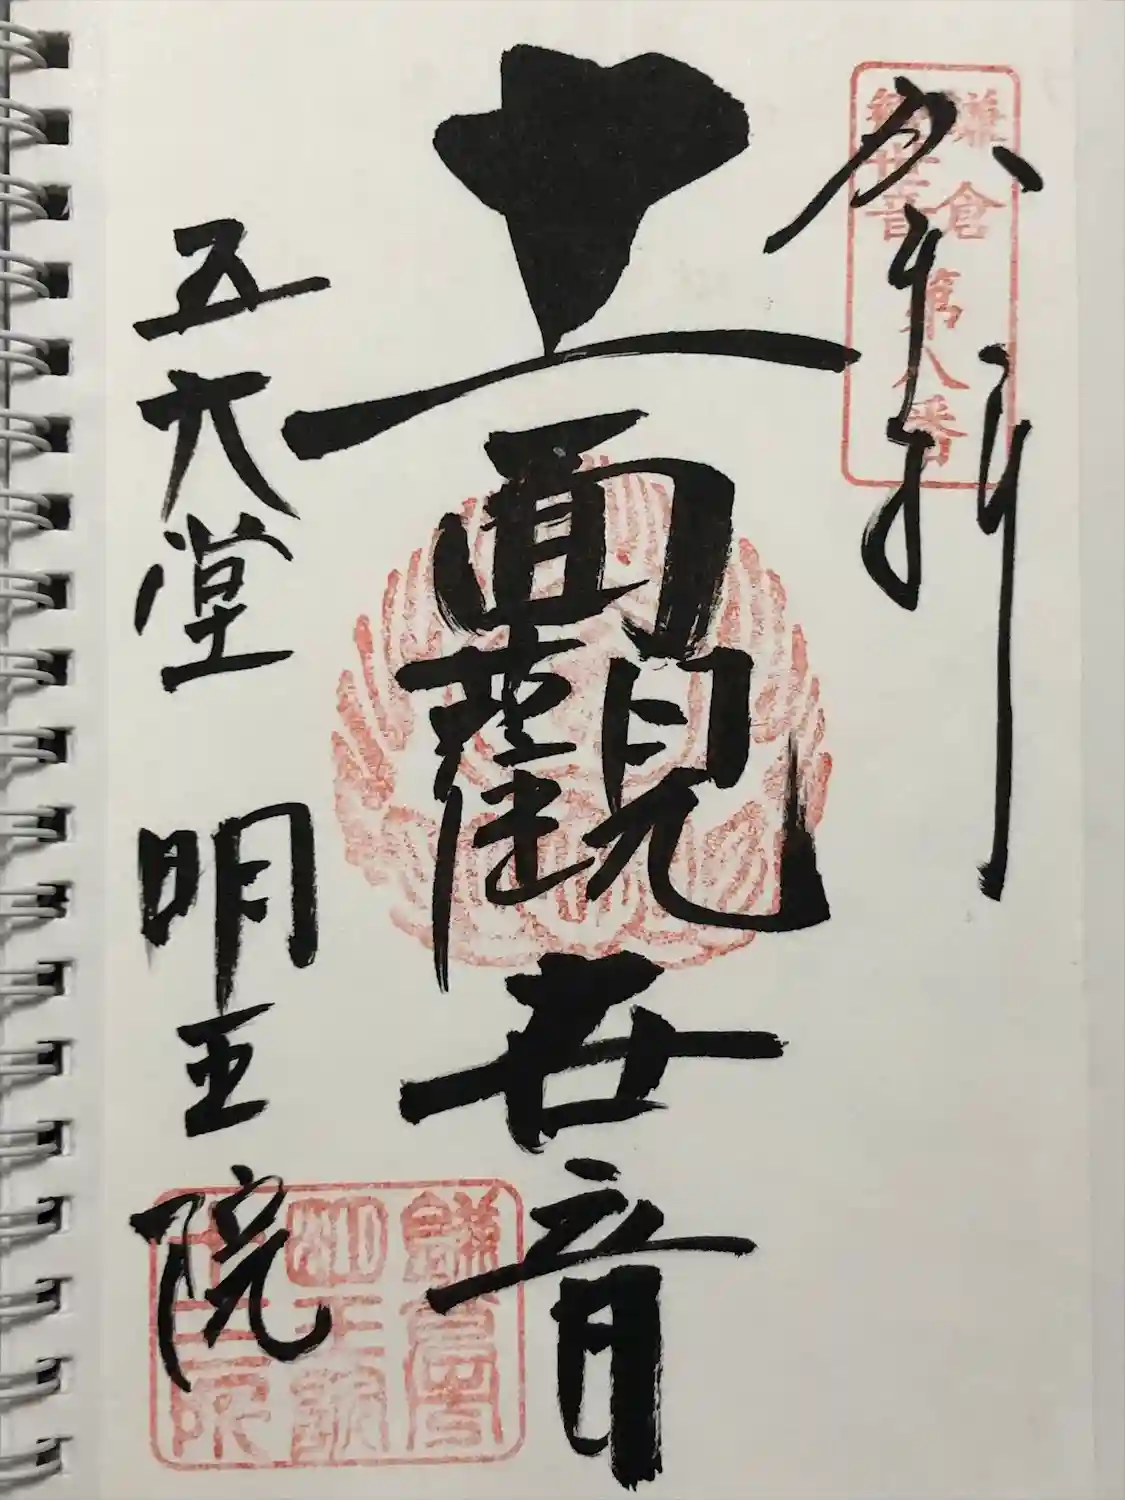 奉拝
鎌倉
觀世音
第八番
十一面觀世音
五大堂 明王院
鎌倉
明王院
十二所